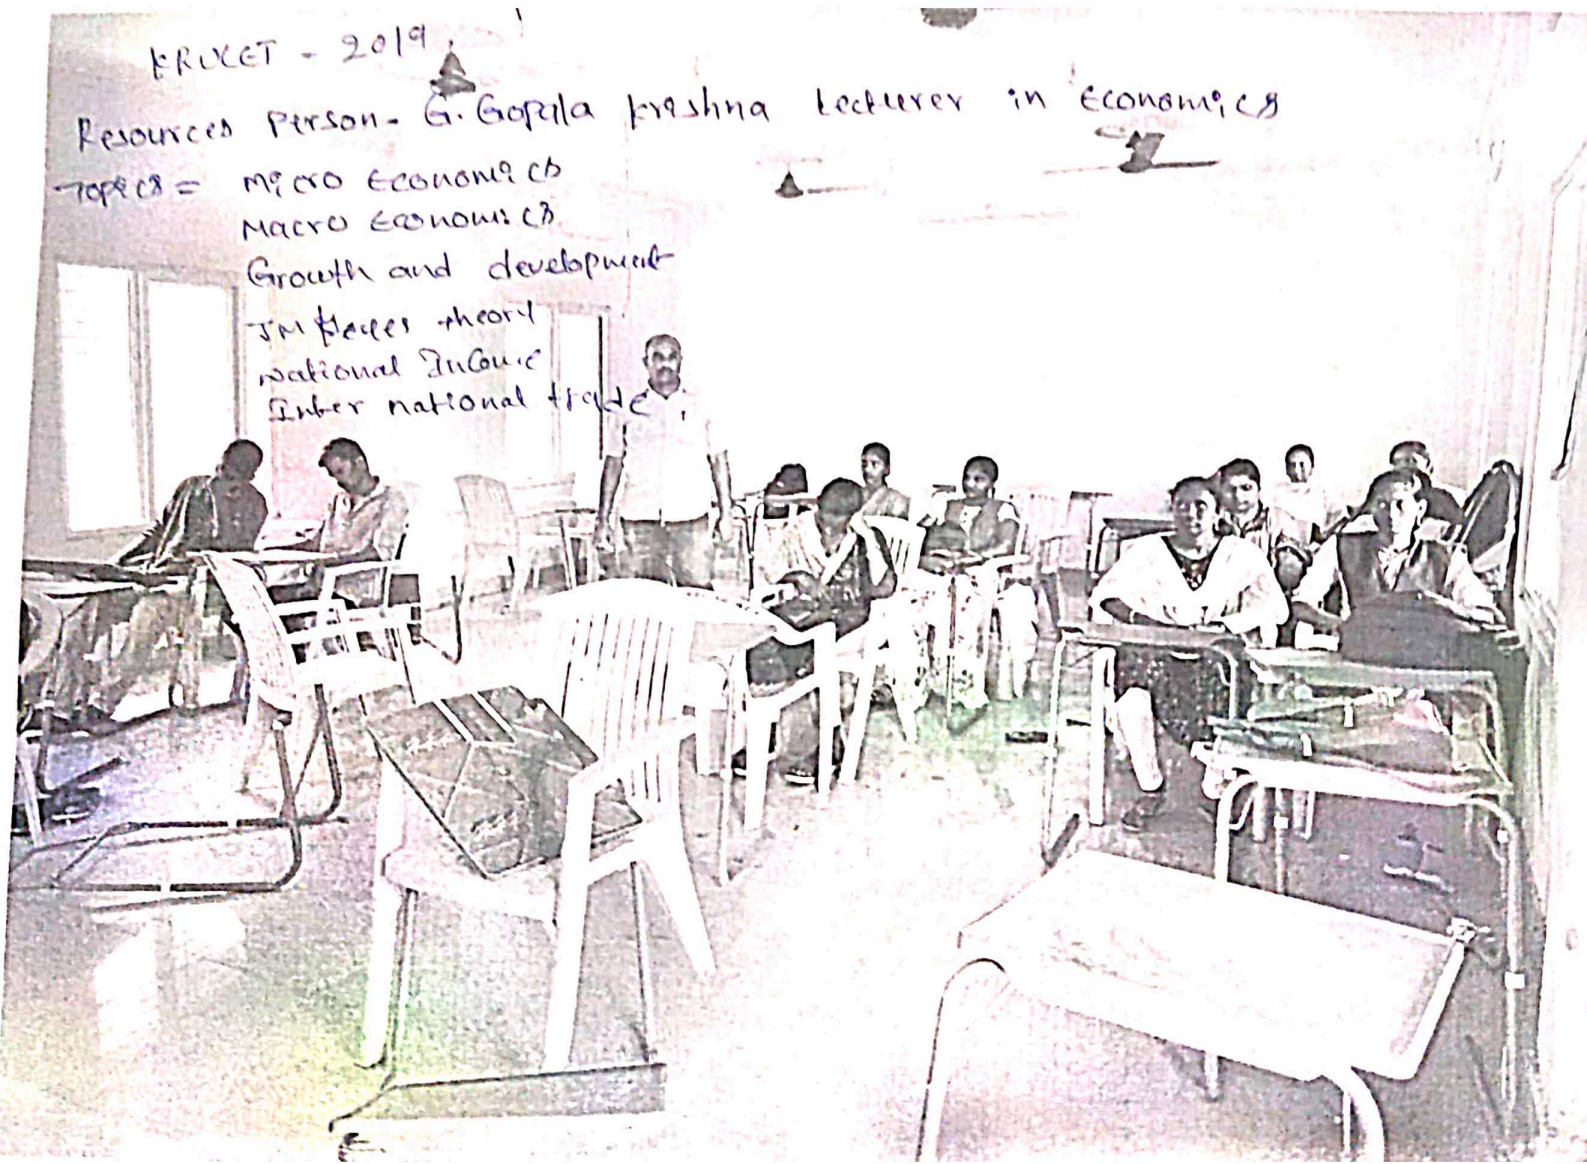 KRUCET - 2019.
Resources Person - G. Gopala krishna Lecturer in Economics
Topics = Micro Economics
Macro Economics
Growth and development
JM theory
National Income
Inter national trade